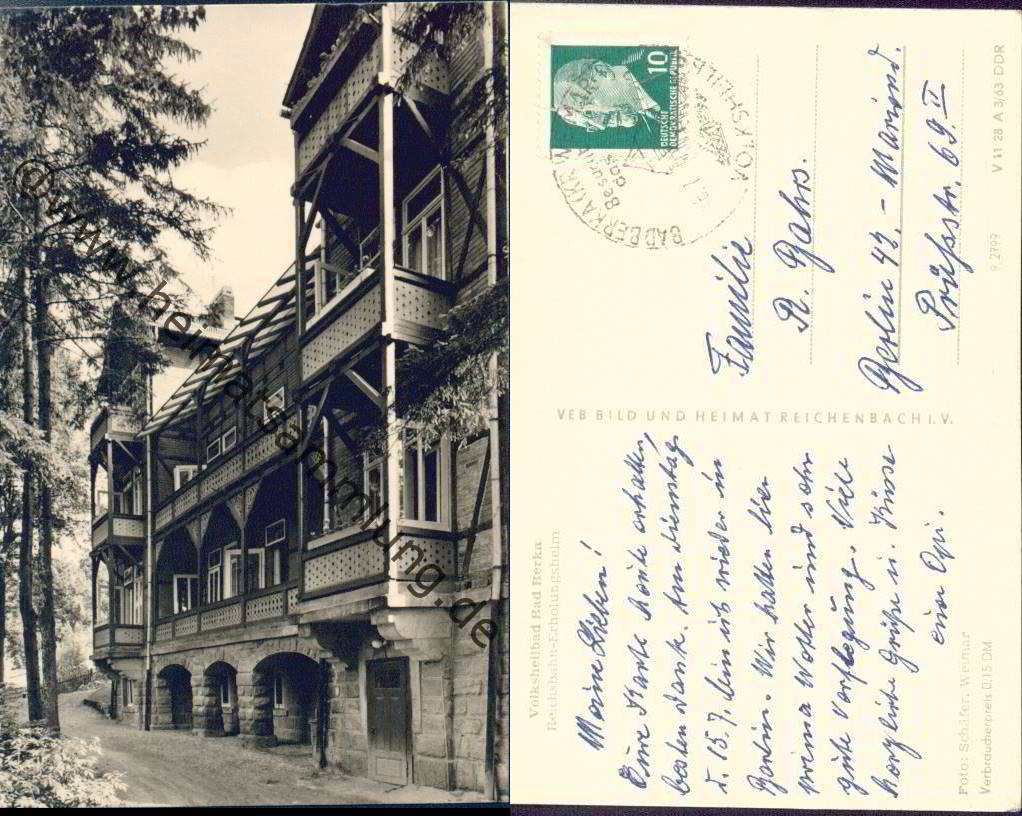 © www.heimatsammlung.de
Volksheilbad Bad Berka
Reichsbahn-Erholungsheim
Meine Lieben!
Eure Karte heute erhalten,
besten Dank. Am Dienstag
d. 15.7. bin ich wieder in
Berlin. Wir hatten hier
prima Wetter und sehr
gute Verpflegung. Viele
herzliche Grüße u. Küsse
eine Opi.
Foto: Schäfer, Weimar
Verbraucherpreis 0,15 DM
VEB BILD UND HEIMAT REICHENBACH i. V.
10
DEUTSCHE
DEMOKRATISCHE REPUBLIK
BAD BERKA
VOLKSHEILBAD
Familie
R. Gahrs.
Berlin 42. - Mariend.
Prühssstr. 69. II
V 11 28 A 3/63 DDR
9 2799